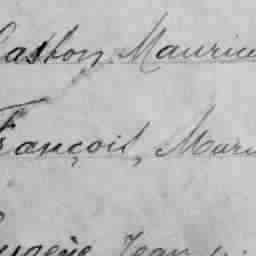 Gaston Maurice
François, Mari
Eugène Jean